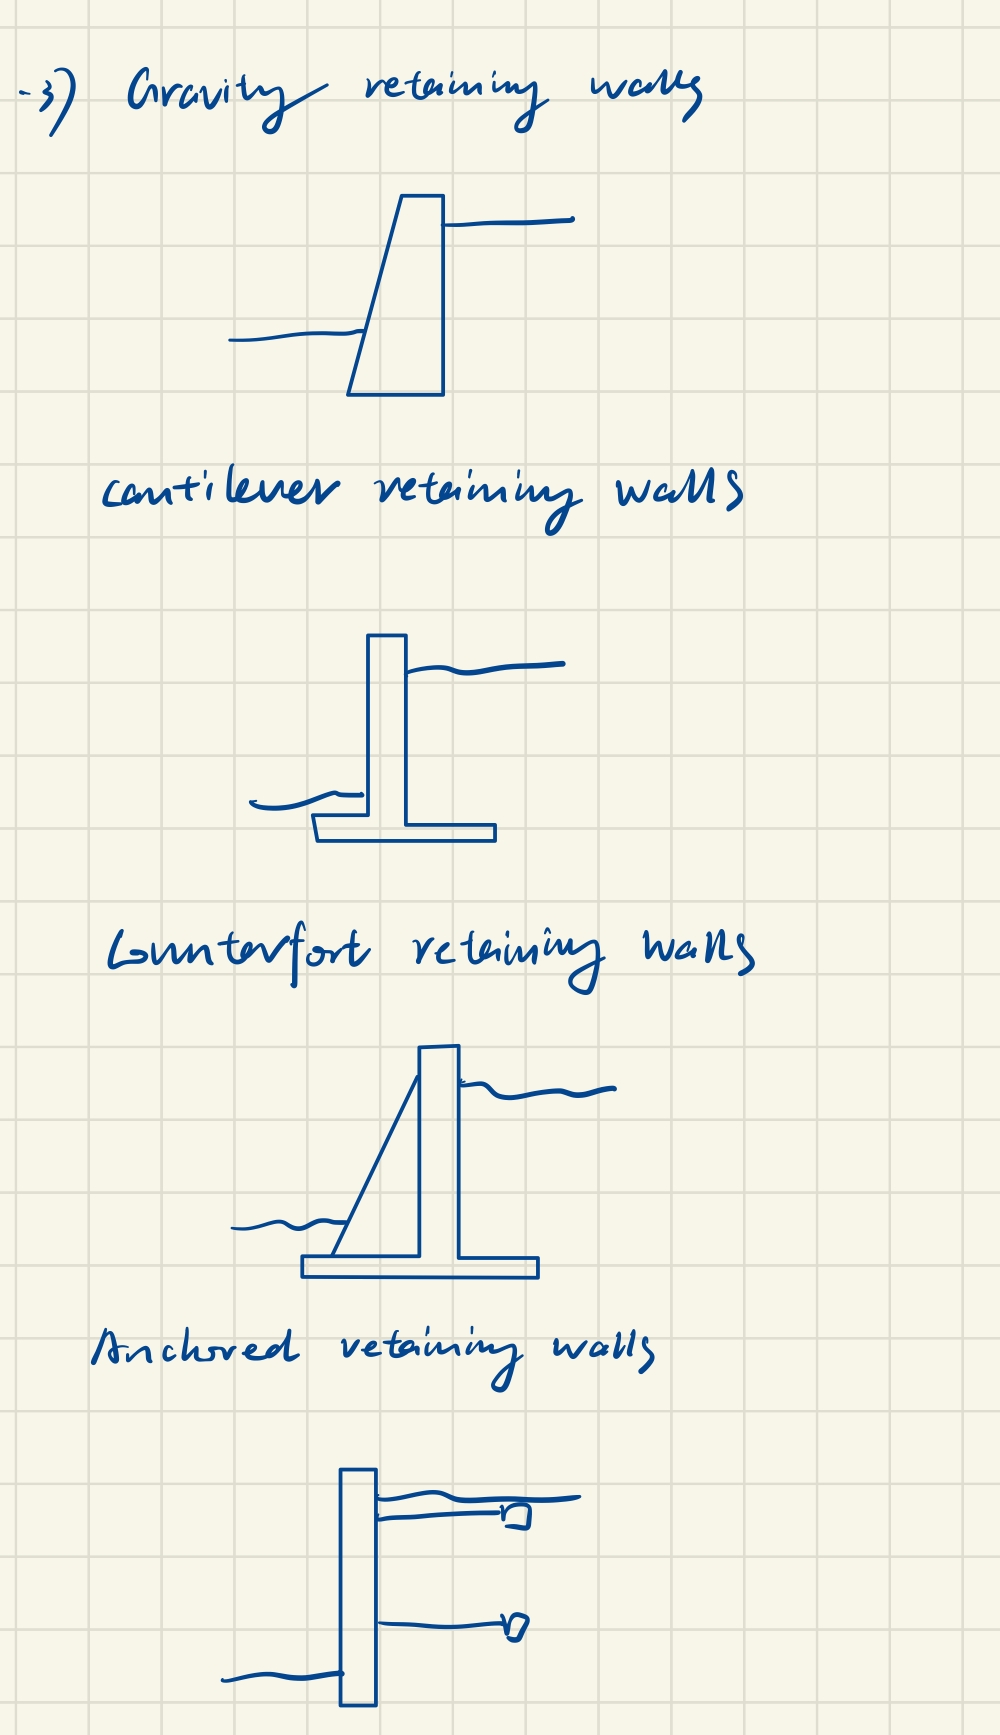 -3) Gravity retaining walls
cantilever retaining walls
Counterfort retaining walls
Anchored retaining walls